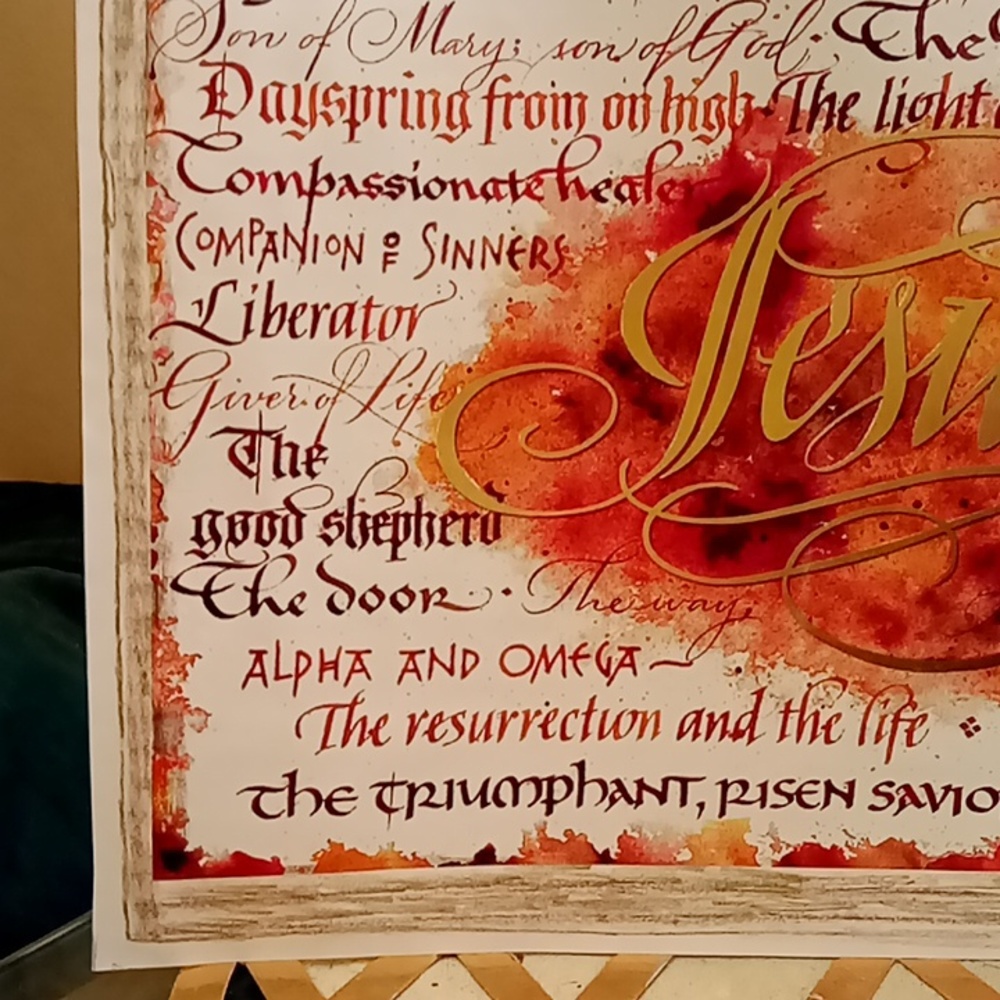 Son of Mary; son of God · The
Dayspring from on high · The light
Compassionate healer
COMPANION OF SINNERS
Liberator
Giver of Life
Jesu
The
good shepherd
The door · The way,
ALPHA AND OMEGA
The resurrection and the life
The TRIUMPHANT, RISEN SAVIO